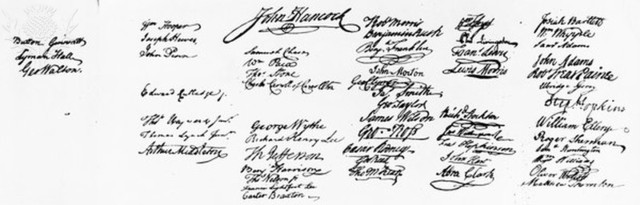 Button Gwinnett
Lyman Hall
Geo Walton.
Wm Hooper
Joseph Hewes,
John Penn
Edward Rutledge
Thos Heyward Junr.
Thomas Lynch Junr.
Arthur Middleton
John Hancock
Samuel Chase
Wm Paca
Thos Stone
Charles Carroll of Carrollton
George Wythe
Richard Henry Lee
Th Jefferson
Benj Harrison
Thos Nelson jr.
Francis Lightfoot Lee
Carter Braxton
Robt Morris
Benjamin Rush
Benj. Franklin
John Morton
Geo Clymer
Jas. Smith
Geo. Taylor
James Wilson
Geo. Ross
Caesar Rodney
Geo Read
Tho M:Kean
Wm Floyd
Phil. Livingston
Frans. Lewis
Lewis Morris
Richd. Stockton
Jno Witherspoon
Fras. Hopkinson
John Hart
Abra Clark
Josiah Bartlett
Wm. Whipple
Saml Adams
John Adams
Robt Treat Paine
Elbridge Gerry
Step. Hopkins
William Ellery
Roger Sherman
Saml Huntington
Wm Williams
Oliver Wolcott
Matthew Thornton